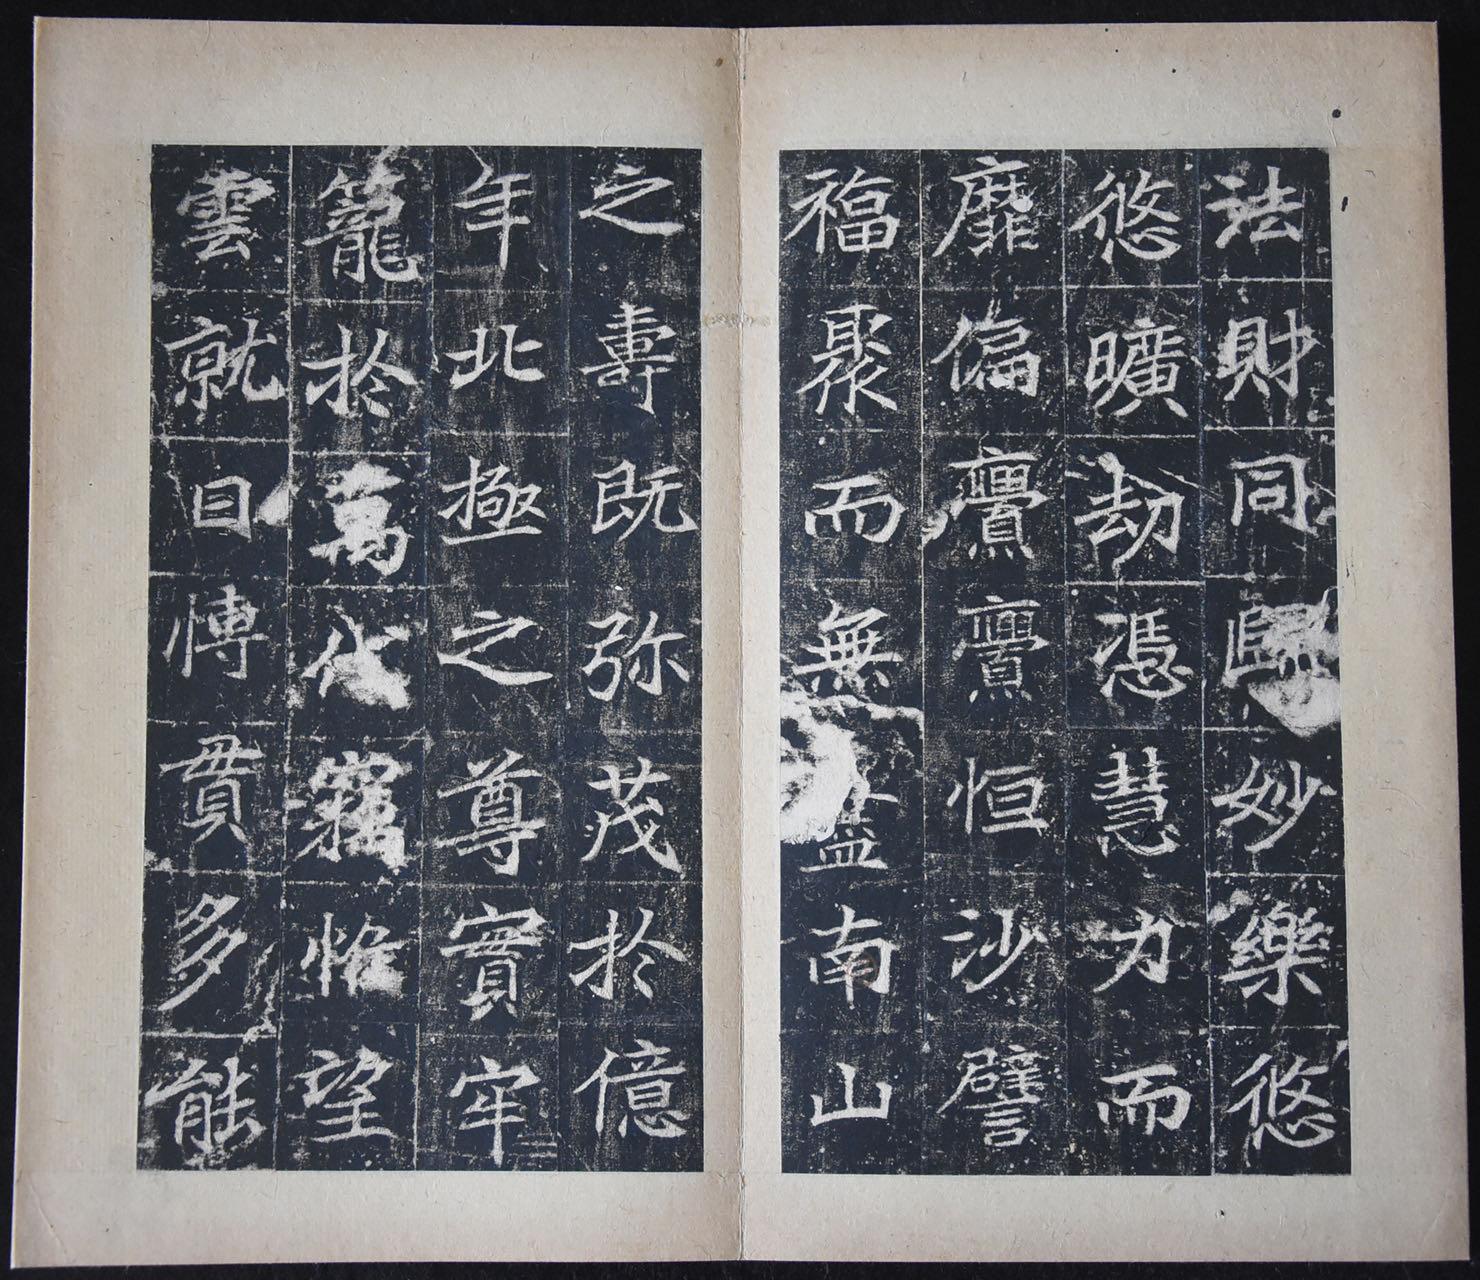 法財同歸妙樂悠
悠曠劫憑慧力而
靡偏亹亹恒沙譬
福聚而無盡南山
之壽既弥茂於億
年北極之尊實牢
籠於萬代竊惟望
雲就日愽貫多能